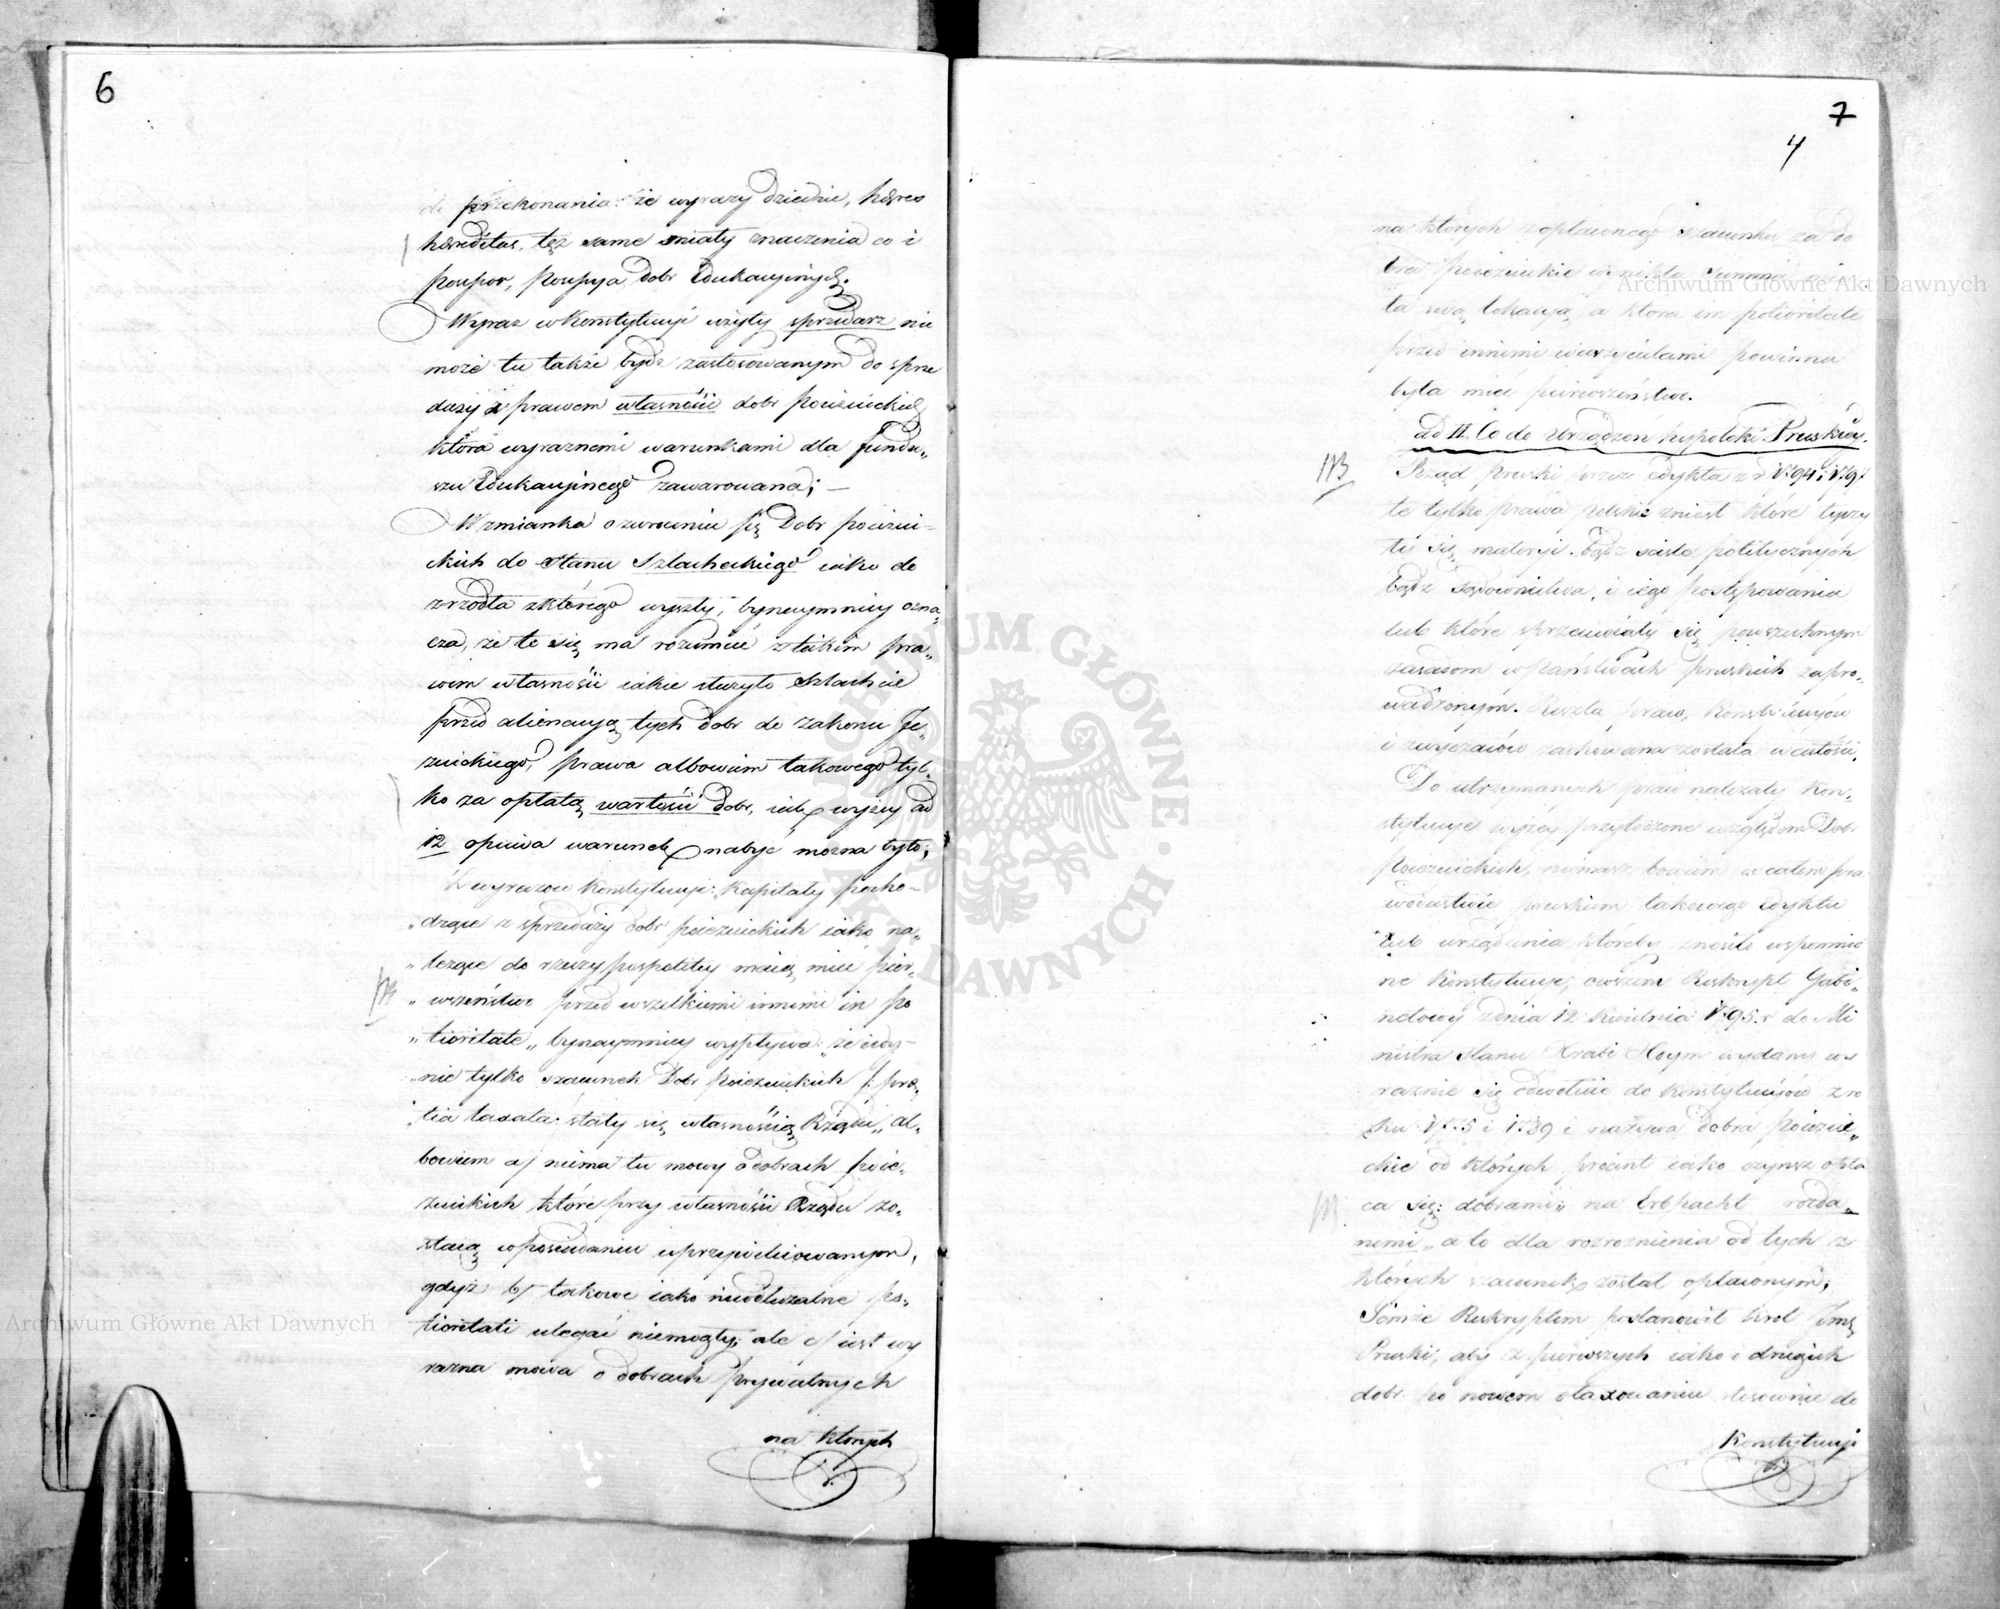 6
do przekonania: że wyrazy dziedzic, hæres
hæreditas, też same miały znaczenia co i
possessor, possessya dobr Edukacyinych.
Wyraz w Konstytucyi użyty sprzedarz nie
może tu także bydź zastosowanym do sprze
daży z prawem własności dobr pojezuickich
która wyraznemi warunkami dla fundu„
szu Edukacyinego zawarowana; —
Wzmianka o zwroceniu się Dobr pojezui-
ckich do Stanu Szlacheckiego iako do
zrzodła z którego wyszły, bynaymniey ozna„
cza, że to się ma rozumieć z takim pra„
wem własności iakie służyło Szlachcie
przed alienacyą tych dobr do zakonu Je„
zuickiego, prawa albowiem takowego tyl„
ko za opłatą wartości dobr, iak wyżey ad
12 opiewa warunek nabyć można było;
Z wyrazow Konstytucyi: Kapitały pocho-
„dzące z sprzedaży dobr pojezuickich iako na„
„leżące do rzeczypospolitey maią mieć pier„
NB
„wszeństwo przed wszelkiemi innemi in po
„tioritate„ bynaymniey wypływa: „że iedy-
„nie tylko szacunek Dobr pojezuickich /: pre„
„tia taxata: stały się własnością Rządu„ al„
bowiem a/ niema tu mowy o dobrach poie„
zuickich które przy własności Rządu zo„
staią w posiadaniu uprzywileiowanym,
gdyż b/ takowe iako niewdłużalne po„
tioritati ulegać niemogły; ale c/ iest wy
razna mowa o dobrach prywatnych
na których
7
4
na ktorych z opłaconego szacunku za do
bra pojezuickie wynikła summa mia
ła swą lokacyą a ktora in potioritate
przed innemi wierzycielami powinna
była mieć pierwszeństwo.
ad II. Co do Urządzen hypoteki Pruskiey.
NB
Rząd pruski przez Edykta z r 1794 i 1797
te tylko prawa polskie zniosł które tyczy
ły się materyi bądz scisle politycznych,
bądz sądownictwa, i iego postępowania
lub które sprzeciwiały się powszechnym
zasadom w Państwach pruskich zapro„
wadzonym. Reszta praw, Konstytucyow
i zwyczaiów zachowana została w całości.
Do utrzymanych praw należały Kon„
stytucye wyżey przytoczone względem Dobr
Pojezuickich, niemasz bowiem w całem pra
wodastwie pruskiem takowego Edyktu
lub urządzenia któreby znosiło wspomnio
ne Konstytucye, owszem Reskrypt Gabi„
netowy z dnia 12 Kwietnia 1795 r do Mi
nistra Stanu Hrabi Hoym wydany wy
raznie się odwołuie do Konstytucyow z ro
ku 1775 i 1789 i nazywa dobra pojezui„
ckie od których procent iako czynsz opła
NB
ca się: dobrami„ na Erbpacht rozda„
nemi„ a to dla rozroznienia od tych z
których szacunek został opłaconym;
Tymże Reskryptem postanowił Krol Jmć
Pruski, aby z pierwszych iako i drugich
dobr po nowem otaxowaniu stosownie do
Konstytucyi
Archiwum Główne Akt Dawnych
Archiwum Główne Akt Dawnych
ARCHIWUM GŁÓWNE AKT DAWNYCH